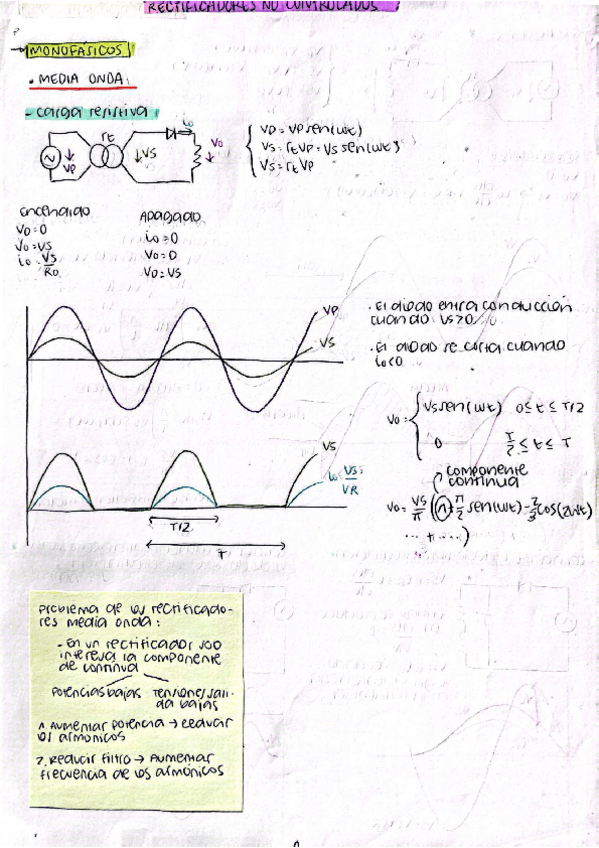 RECTIFICADORES NO CONTROLADOS
MONOFÁSICOS
• MEDIA ONDA:
- carga resistiva:
io
rt
VP
VS
Vo
VP = VP sen(wt)
VS = rt VP = VS sen(wt)
VS = rt VP
Encendido
VD = 0
Vo = VS
io = VS/Ro
Apagado
io = 0
Vo = 0
VD = VS
VP
VS
• El diodo entra conducción
cuando VS>0
• El diodo se corta cuando
io<0
Vo = { VS sen(wt) 0 ≤ t ≤ T/2
0 T/2 ≤ t ≤ T
VS
T/2
T
componente
continua
Vo = VS/π (1 + π/2 sen(wt) - 2/3 cos(2wt)
... + ...)
Problema de los rectificado-
res media onda:
- En un rectificador solo
interesa la componente
de continua
Potencias bajas
Tensiones sali-
da bajas
1. Aumentar potencia → reducir
los armónicos
2. Reducir filtro → Aumentar
frecuencia de los armónicos